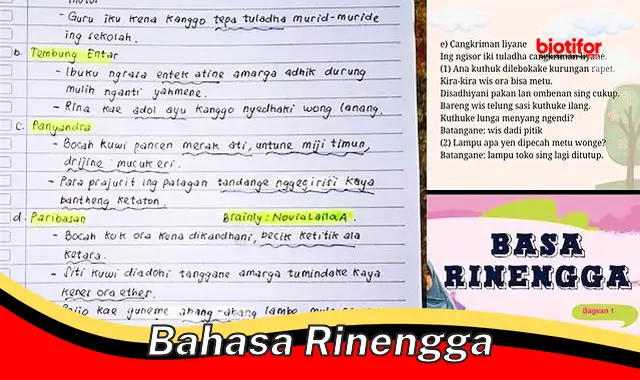 - Guru iku kena kanggo tepa tuladha murid-muride
ing sekolah.
b. Tembung Entar
- Ibuku ngrasa entek atine amarga adhik durung
mulih nganti yahmene.
- Rina kae adol ayu kanggo nyedhaki wong lanang.
c. Panyandra
- Bocah kuwi pancen merak ati, untune miji timun,
drijine mucuk eri.
- Para prajurit ing palagan tandange nggegirisi kaya
bantheng ketaton.
d. Paribasan
Brainly: Novia Laila A
- Bocah kok ora kena dikandhani, becik ketitik ala
ketara.
- Siti kuwi diadohi tanggane amarga tumindake kaya
kener ora ether.
kae guneme abang-abang lambe
e) Cangkriman liyane
biotifor
Ing ngisor iki tuladha cangkriman liyane.
(1) Ana kuthuk dilebokake kurungan rapet.
Kira-kira wis ora bisa metu.
Disadhiyani pakan lan ombenan sing cukup.
Bareng wis telung sasi kuthuke ilang.
Kuthuke lunga menyang ngendi?
Batangane: wis dadi pitik
(2) Lampu apa yen dipecah metu wonge?
Batangane: lampu toko sing lagi ditutup.
BASA
RINENGGA
Bagean 1
Bahasa Rinengga